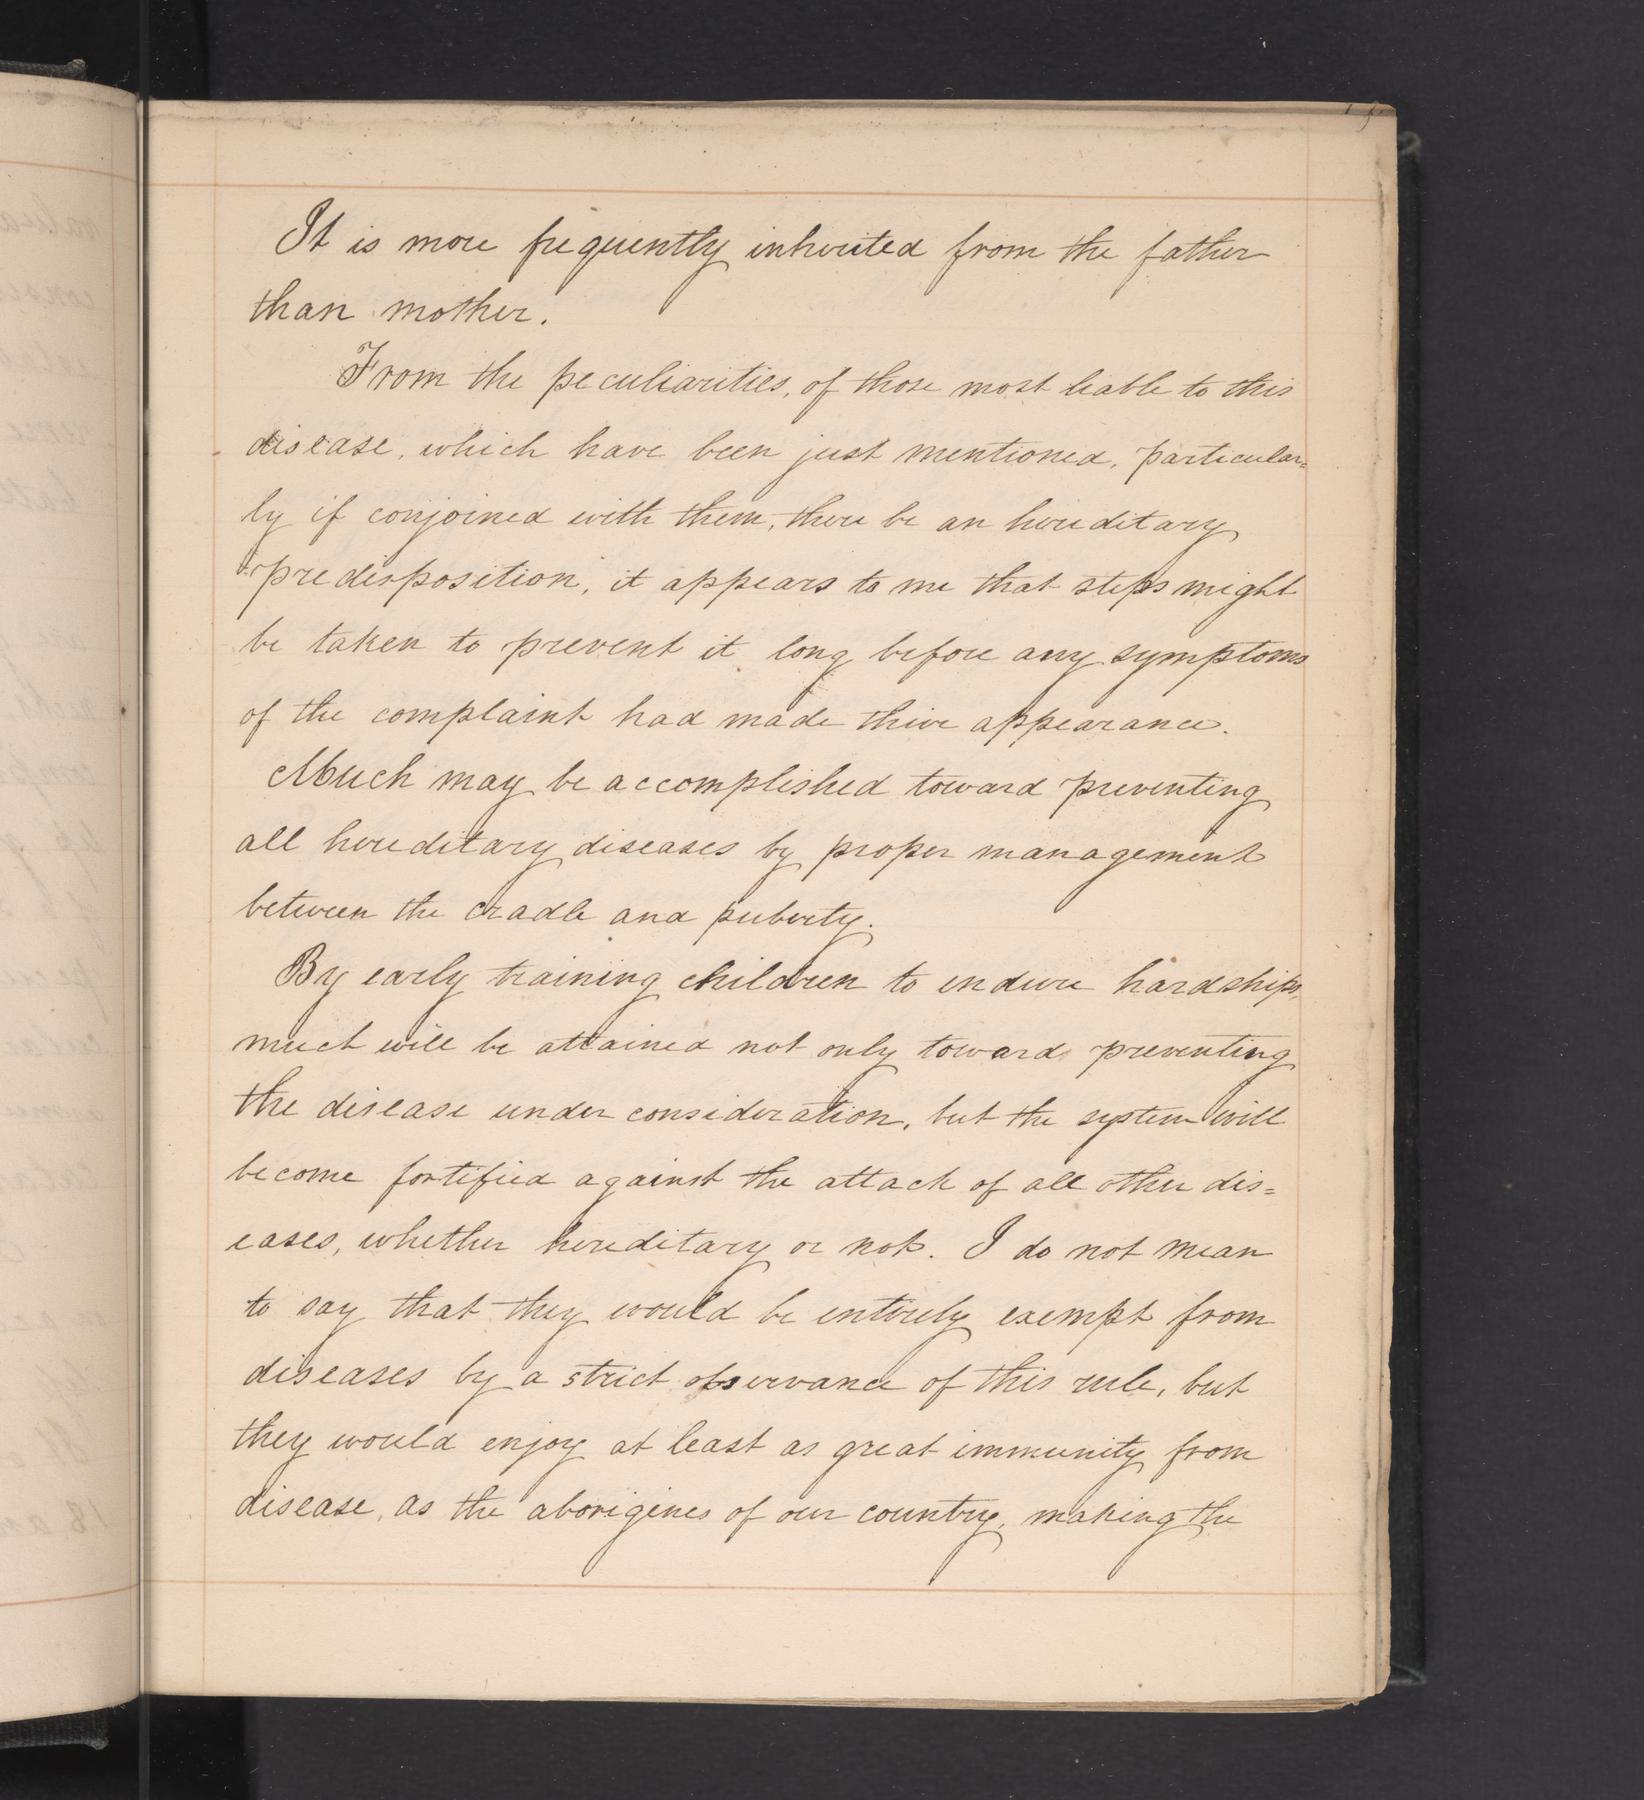 It is more frequently inherited from the father
than mother.
From the peculiarities, of those most liable to this
disease, which have been just mentioned, particular=
ly if conjoined with them, there be an hereditary
predisposition, it appears to me that steps might
be taken to prevent it long before any symptoms
of the complaint had made thire appearance.
Much may be accomplished toward preventing
all hereditary diseases by proper management
between the cradle and puberty.
By early training children to endure hardships,
much will be attained not only towards preventing
the disease under consideration, but the system will
become fortified against the attack of all other dis=
eases, whether hereditary or not. I do not mean
to say that they would be entirely exempt from
diseases by a strict observance of this rule, but
they would enjoy at least as great immunity from
disease, as the aborigines of our country, making the